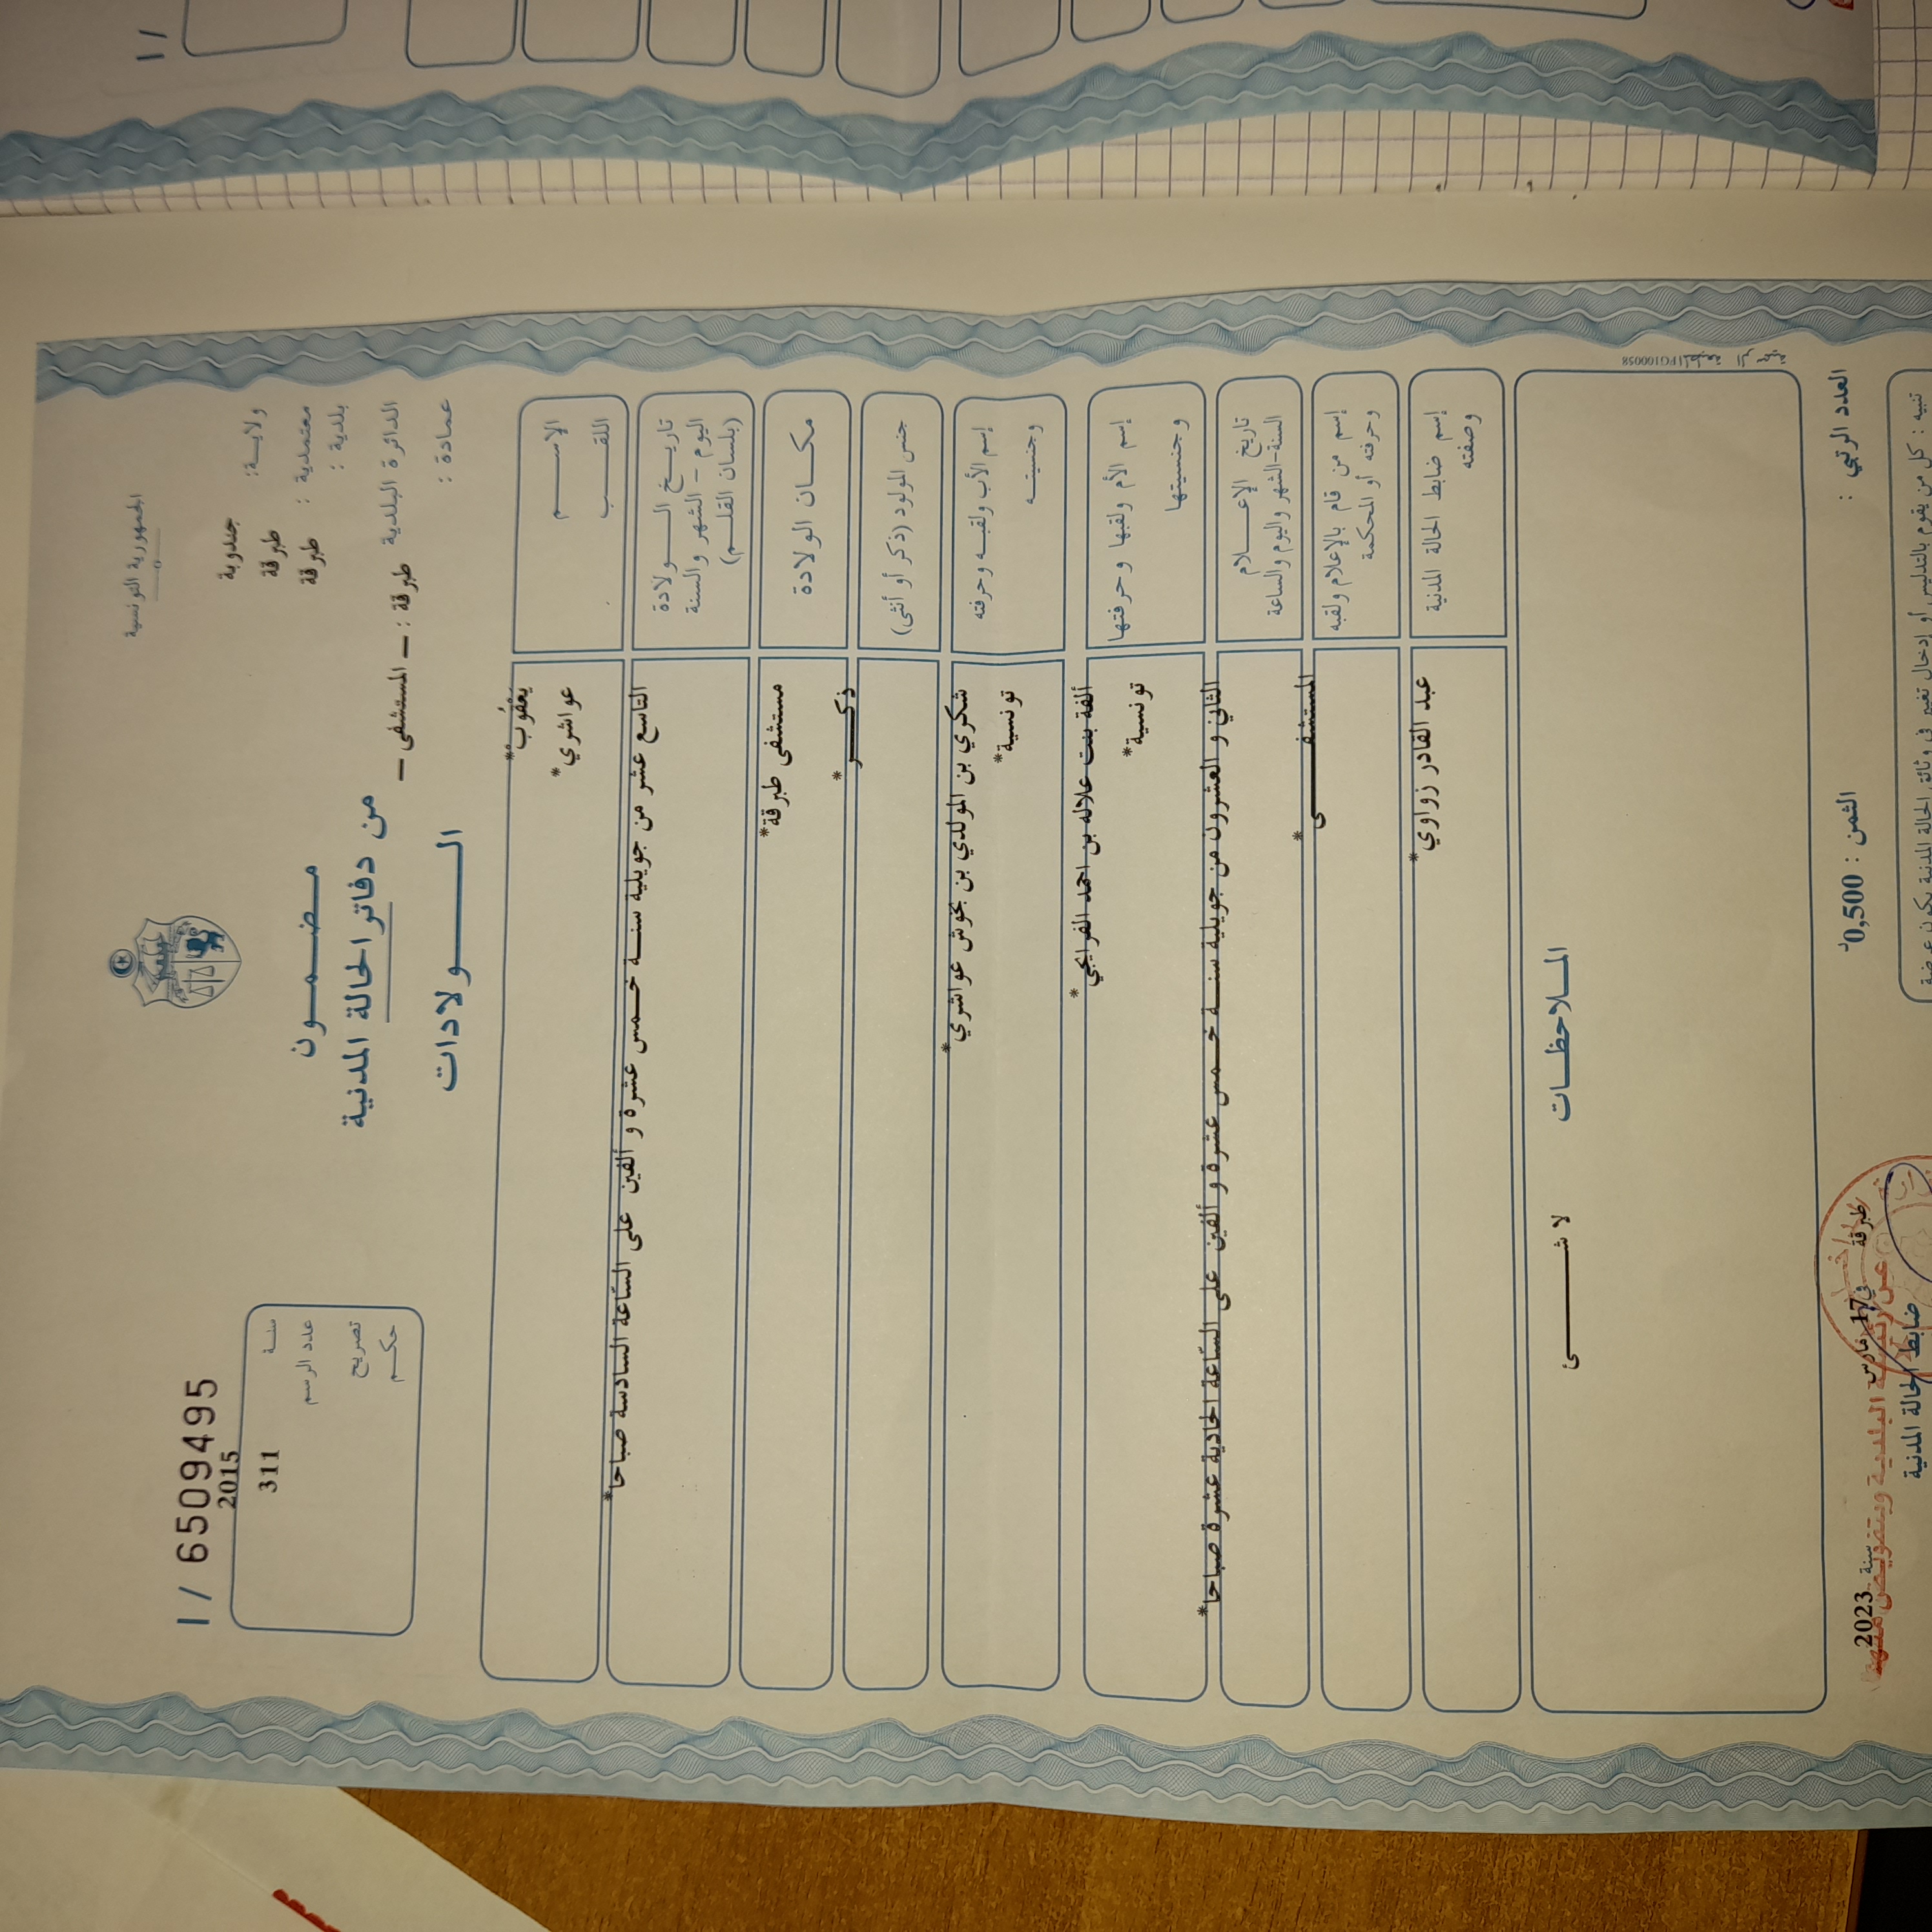 الجمهورية التونسية
ا / 65094495
ولايــة: جندوبة
معتمدية : طبرقة
بلدية : طبرقة
الدائرة البلدية طبرقة : – المستشفى –
عمادة :
مـضــمــون
من دفاتر الحالة المدنية
الــــولادات
سنـة 2015
عدد الرسم 311
تصريح
حكـم
الإســــم يَعْقُوبْ*
اللقــــب عواشري*
تاريــخ الــــولادة
اليوم – الشهر والسنة
(بلسان القلــم)
التاسع عشر من جويلية سنــة خـمس عشرة و ألفين على السّاعة السادسة صباحا*
مكــان الولادة مستشفى طبرقة*
جنس المولود (ذكر أو أنثى) ذكـــر*
إسم الأب ولقبـه وحرفته شكري بن المولدي بن بخوش عواشري*
وجنسيتـه تونسية*
إسم الأم ولقبها وحرفتها ألفة بنت علاله بن احمد الفرايجي*
وجنسيتها تونسية*
تاريخ الإعـــلام
السنة-الشهر واليوم والساعة
الثاني و العشرون من جويلية سنــة خــمس عشرة و ألفين على السّاعة الحادية عشرة صباحا*
إسم من قام بالإعلام ولقبه
وحرفته أو المحكمة
المستشفــــى*
إسم ضابط الحالة المدنية
وصفته
عبد القادر زواوي*
المــلاحظــات
لا شـــــئ
IFG100058
العدد الرتبي :
الثمن : 0,500د
طبرقة في 17 مارس سنة 2023
ضابط الحالة المدنية
عن رئيسة البلدية وبتفويض منها
تنبيه : كل من يقوم بالتدليس أو إدخال تغيير في وثائق الحالة المدنية يكون عرضة